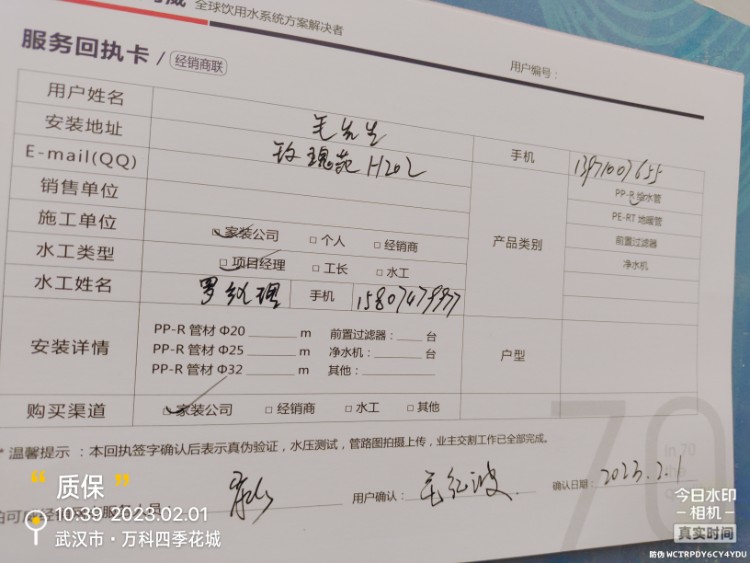 威 全球饮用水系统方案解决者
服务回执卡 / 经销商联
用户编号：
用户姓名 毛先生 手机 13971007655
安装地址 玫瑰苑 H202
E-mail(QQ)
销售单位
产品类别 PP-R 给水管
PE-RT 地暖管
前置过滤器
净水机
施工单位 家装公司 个人 经销商
水工类型 项目经理 工长 水工
水工姓名 罗经理 手机
安装详情 PP-R 管材 Φ20 m 前置过滤器： 台
PP-R 管材 Φ25 m 净水机： 台
PP-R 管材 Φ32 m 其他：
户型
购买渠道 家装公司 经销商 水工 其他
* 温馨提示：本回执签字确认后表示真伪验证，水压测试，管路图拍摄上传，业主交割工作已全部完成。
用户确认： 毛红波 确认日期： 2023.2.1
70
In 70
质保
10:39 2023.02.01
武汉市·万科四季花城
今日水印
-相机-
真实时间
防伪 WCTRPDY6CY4YDU